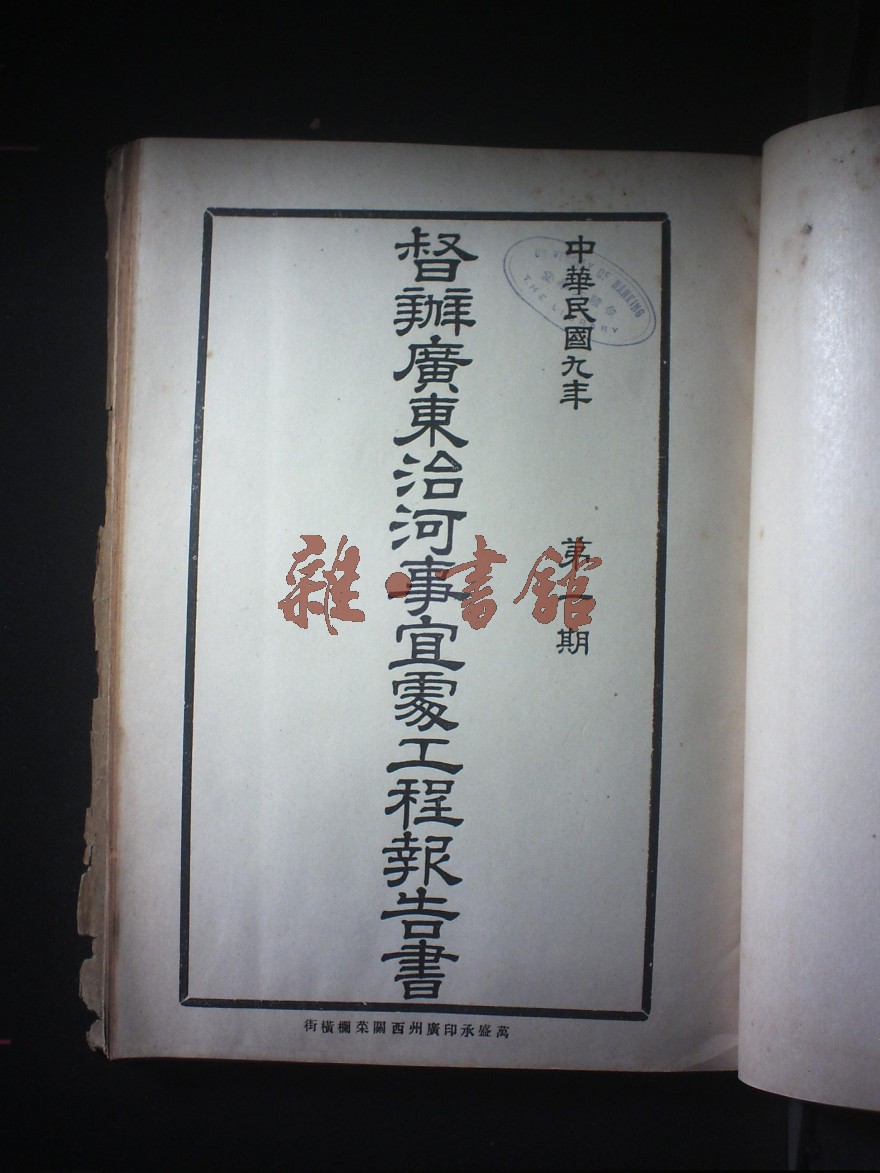 中華民國九年 第一期
督辦廣東治河事宜處工程報告書
萬盛承印廣州西關菜欄橫街
雜·書館
UNIVERSITY OF NANKING
THE LIBRARY